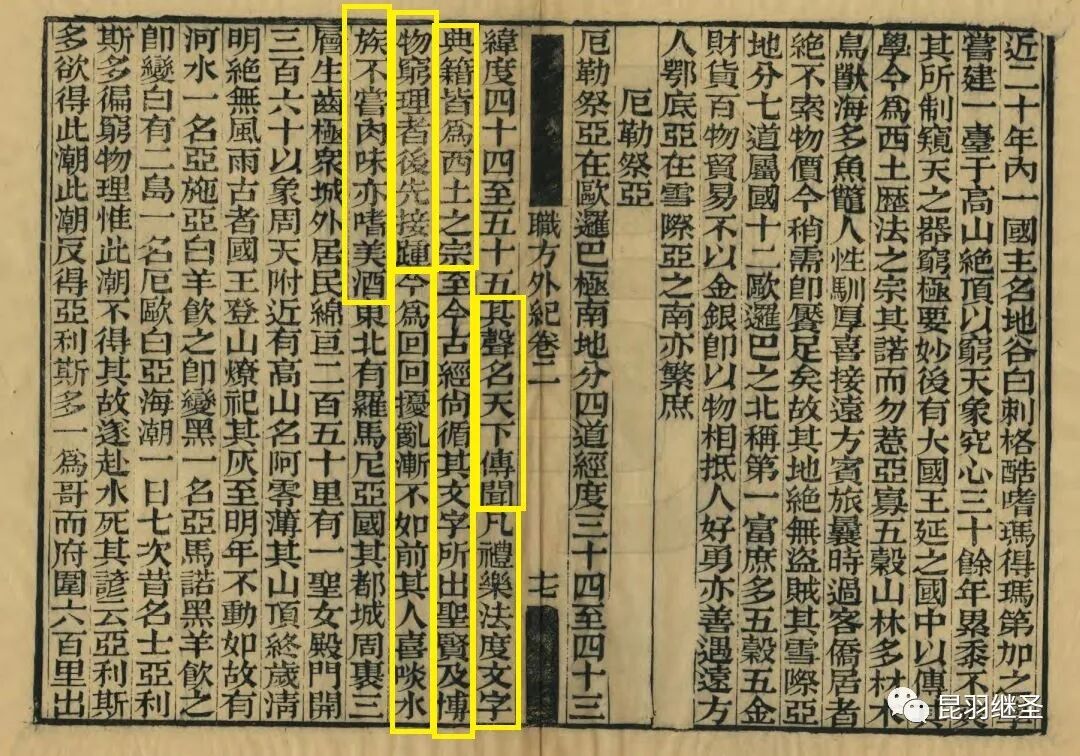 近二十年內一國主名地谷白剌格酷嗜瑪得瑪第加之
嘗建一臺于高山絕頂以窮天象究心三十餘年累黍不
其所制窺天之器窮極要妙後有大國王延之國中以傳
學今爲西土歷法之宗其諾而勿惹亞寡五穀山林多材木
鳥獸海多魚鼈人性馴厚喜接遠方賓旅曩時過客僑居者
絕不索物價今稍需卽饜足矣故其地絕無盜賊其雪際亞
地分七道屬國十二歐邏巴之北稱第一富庶多五穀五金
財貨百物貿易不以金銀卽以物相抵人好勇亦善遇遠方
人鄂底亞在雪際亞之南亦繁庶
厄勒祭亞
厄勒祭亞在歐邏巴極南地分四道經度三十四至四十三
職方外紀卷二
十七
緯度四十四至五十五其聲名天下傳聞凡禮樂法度文字
典籍皆爲西土之宗至今古經尚循其文字所出聖賢及博
物窮理者後先接踵今爲回回擾亂漸不如前其人喜啖水
族不嘗肉味亦嗜美酒東北有羅馬尼亞國其都城周裹三
層生齒極衆城外居民綿亘二百五十里有一聖女殿門開
三百六十以象周天附近有高山名阿零薄其山頂終歲清
明絕無風雨古者國王登山燎祀其灰至明年不動如故有
河水一名亞施亞白羊飲之卽變黑一名亞馬諾黑羊飲之
卽變白有二島一名厄歐白亞海潮一日七次昔名士亞利
斯多徧窮物理惟此潮不得其故遂赴水死其諺云亞利斯
多欲得此潮此潮反得亞利斯多一爲哥而府圍六百里出
昆羽继圣